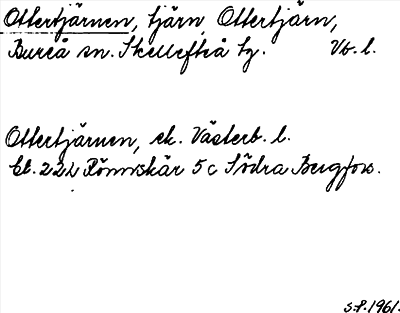 Ottertjärnen, tjärn, Ottertjärn,
Bureå sn. Skellefteå tg. Vb. l.
Ottertjärnen, ek. Västerb. l.
Bl. 22L Rönnskär 5c Södra Bergfors.
S.P. 1961.